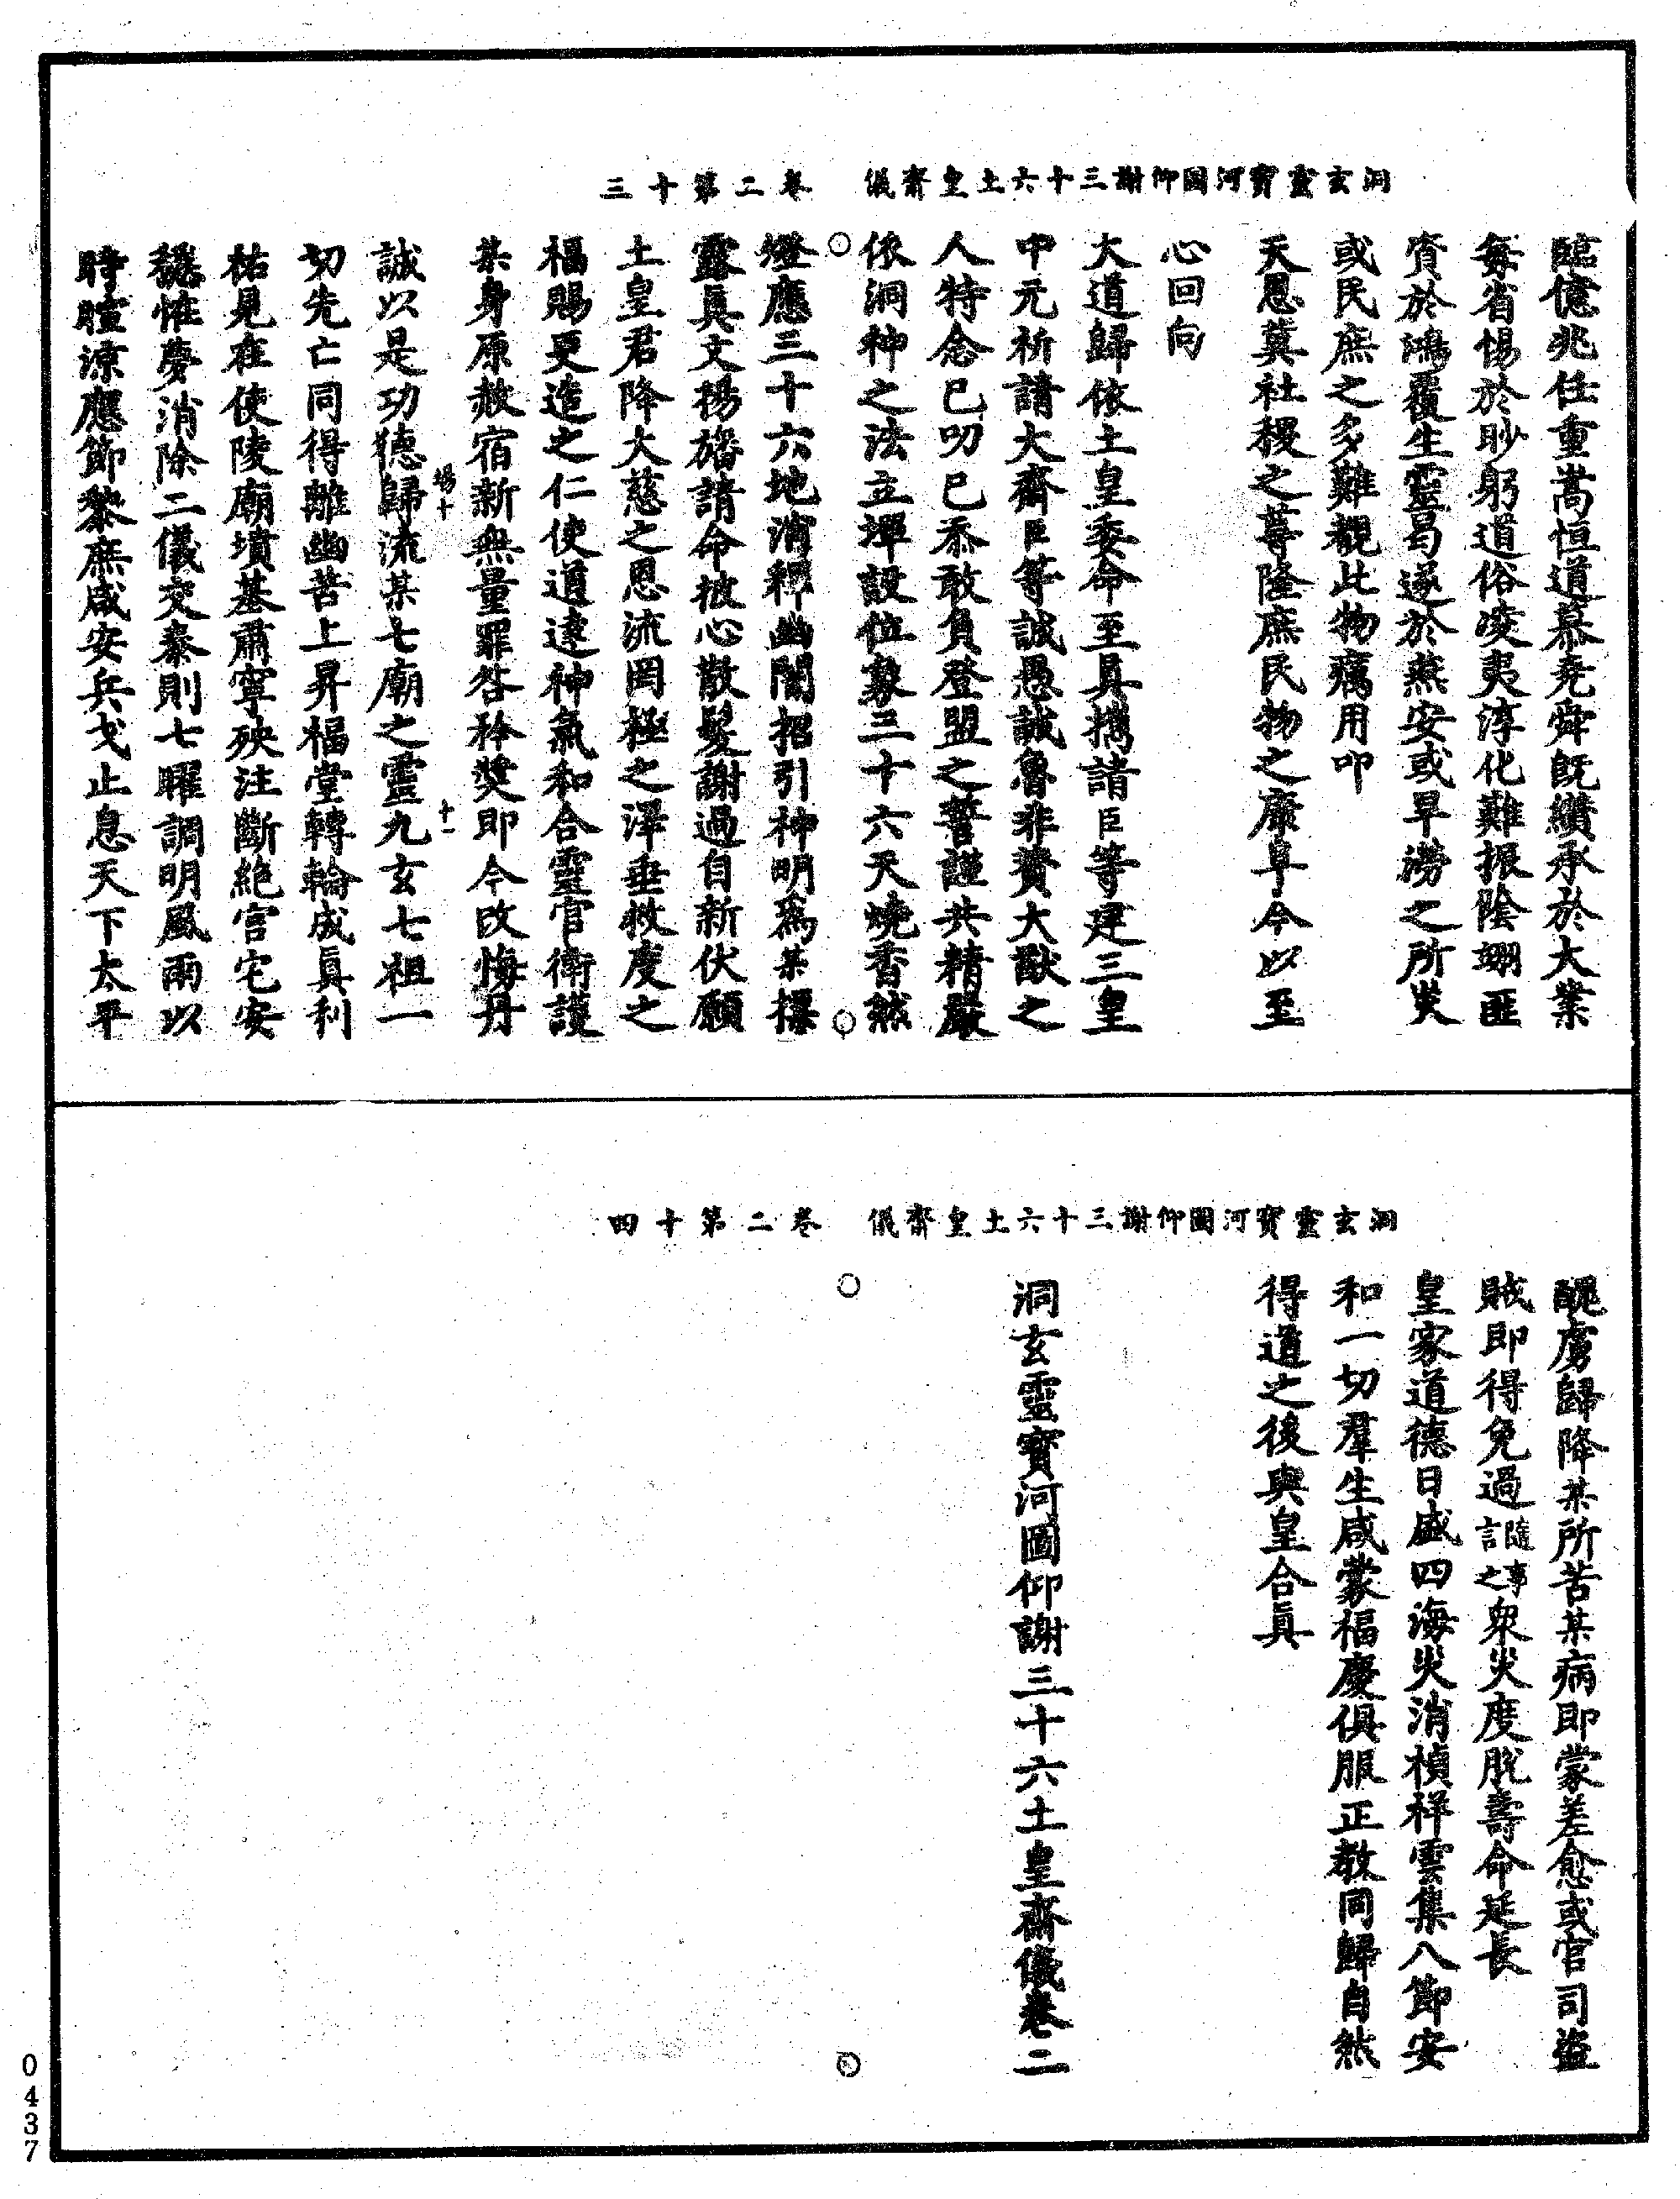 洞玄靈寶河圖仰謝三十六土皇齋儀　卷二第十三
臨億兆任重嵩恒道慕堯舜旣纘承於大業
每省惕於眇躬道俗凌夷淳化難振陰翊匪
賓於鴻覆生靈曷遂於燕安或旱澇之所災
或民庶之多難覩此物癘用叩
天恩冀社稷之尊隆庶民物之康阜今以至
心回向
大道歸依土皇委命至具撝請臣等建三皇
中元祈請大齋臣等誠愚誠魯非贊大猷之
人特念已叨已忝敢負登盟之誓謹共精嚴
依洞神之法立墠設位象三十六天燒香然
燈應三十六地消釋幽闇招引神明爲某攄
露眞文揚旛請命披心散髮謝過自新伏願
土皇君降大慈之恩流罔極之澤垂救度之
福賜更造之仁使道逺神氣和合靈官衛護
某身原赦宿新無量罪咎矜奬即今改悔丹
場十　十一
誠以是功德歸流某七廟之靈九玄七祖一
切先亡同得離幽苦上昇福堂轉輪成眞利
祐見在使陵廟墳基肅寧殃注斷絶宫宅安
穩惟夢消除二儀交泰則七曜調明風雨以
時暄涼應節黎庶咸安兵戈止息天下太平
洞玄靈寶河圖仰謝三十六土皇齋儀　卷二第十四
醜虜歸降某所苦某病即蒙差愈或官司盜
賊即得免過隨事言之衆災度脫壽命延長
皇家道德日盛四海災消禎祥雲集八節安
和一切羣生咸蒙福慶俱服正教同歸自然
得道之後與皇合眞
洞玄靈寶河圖仰謝三十六土皇齋儀卷二
0437